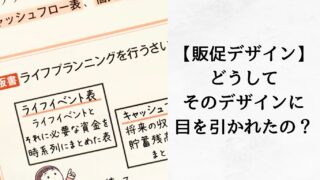 ャッシュフロー表、
ライフプランニングを行うさい
ライフイベント表
ライフイベントと
それに必要な資金を
時系列にまとめた表
キャッシュ
将来の収
貯蓄残
まと
【販促デザイン】
どうして
そのデザインに
目を引かれたの？